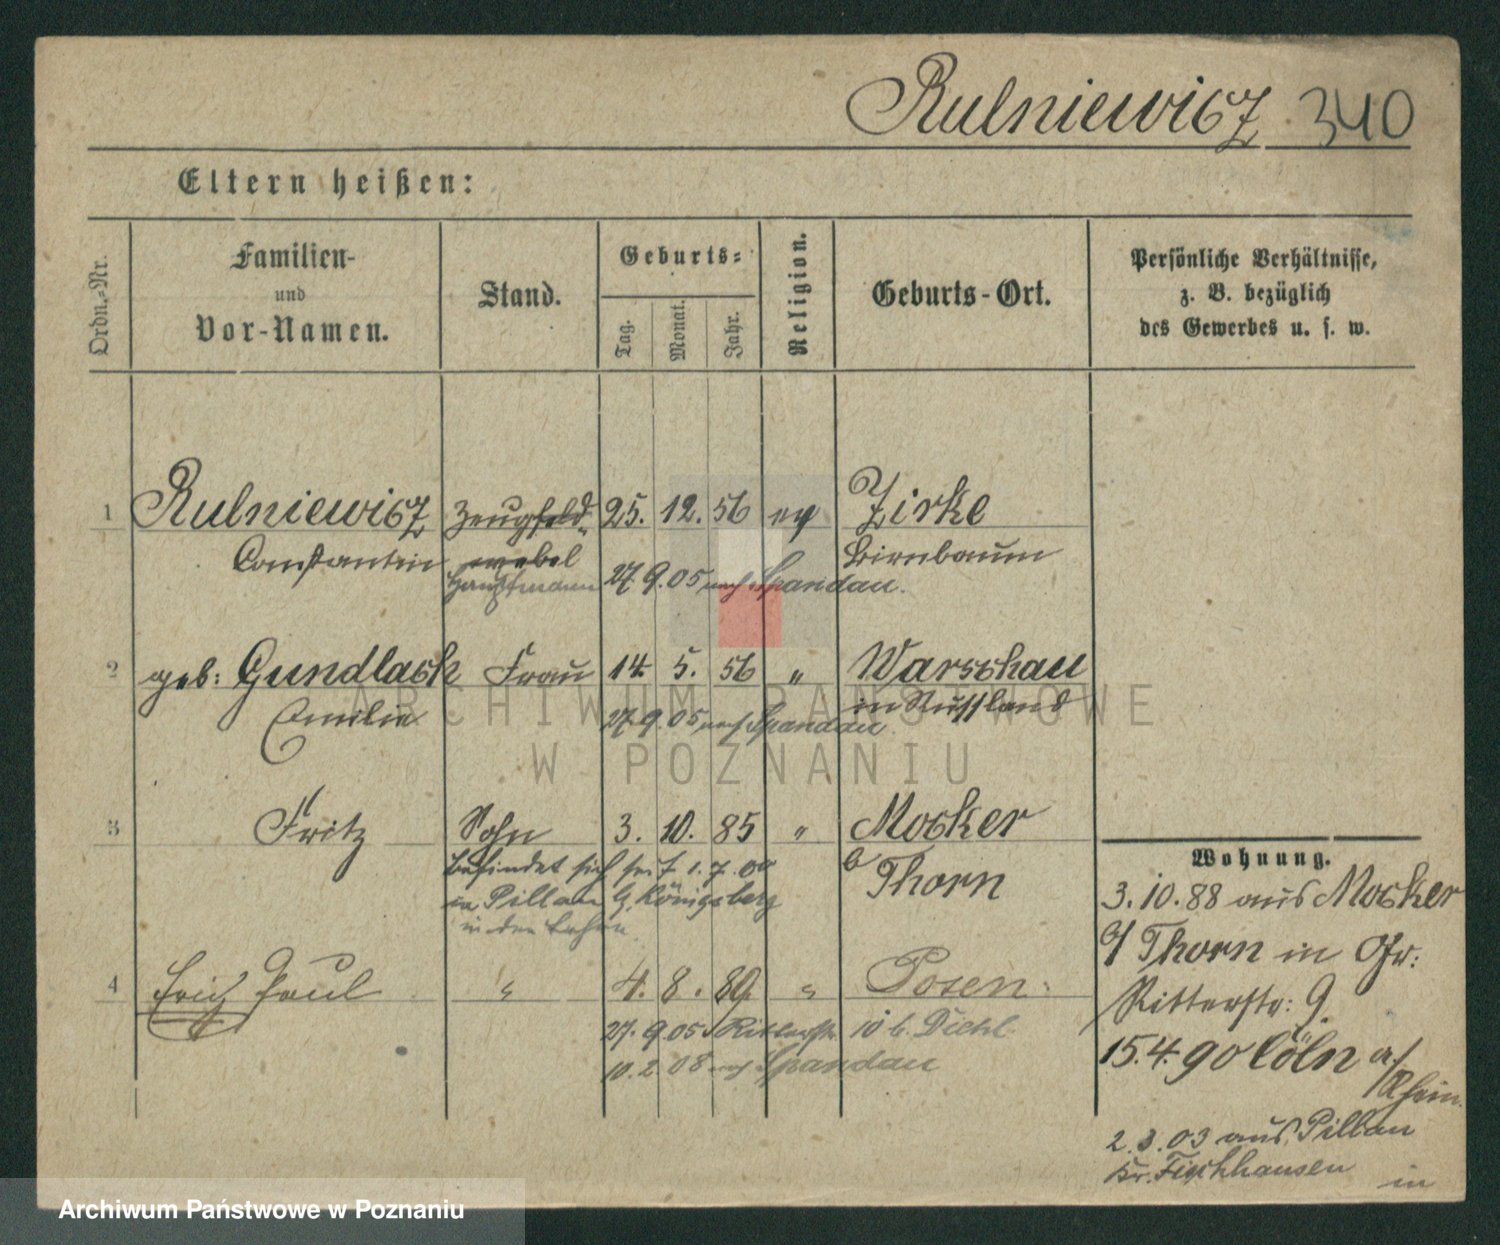 Rulniewicz 340
Eltern heißen:
Ordn.-Nr.
Familien-
und
Vor-Namen.
Stand.
Geburts-
Tag.
Monat.
Jahr.
Religion.
Geburts-Ort.
Persönliche Verhältnisse,
z. B. bezüglich
des Gewerbes u. s. w.
1 Rulniewicz Zeugfeld- 25. 12. 56 ev Zirke
Constantin webel Birnbaum
Hauptmann 27. 9. 05 nach Spandau.
2 geb: Gundlach Frau 14. 5. 56 " Warschau
Emilie in Russland
27. 9. 05 nach Spandau
3 Fritz Sohn 3. 10. 85 " Mocker
b Thorn
befindet sich seit 1. 7. 00
in Pillau b. Königsberg
in der
4 Erich Paul " 4. 8. 89 " Posen.
27. 9. 05 Ritterstr. 10 b. Diehl
10. 2. 08 nach Spandau
Wohnung.
3. 10. 88 aus Mocker
b/ Thorn in Gr:
Ritterstr: 9.
15. 4. 90 Cöln a/
Rhein.
2. 3. 03 aus Pillau
Kr. Fischhausen in
ARCHIWUM PAŃSTWOWE
W POZNANIU
Archiwum Państwowe w Poznaniu